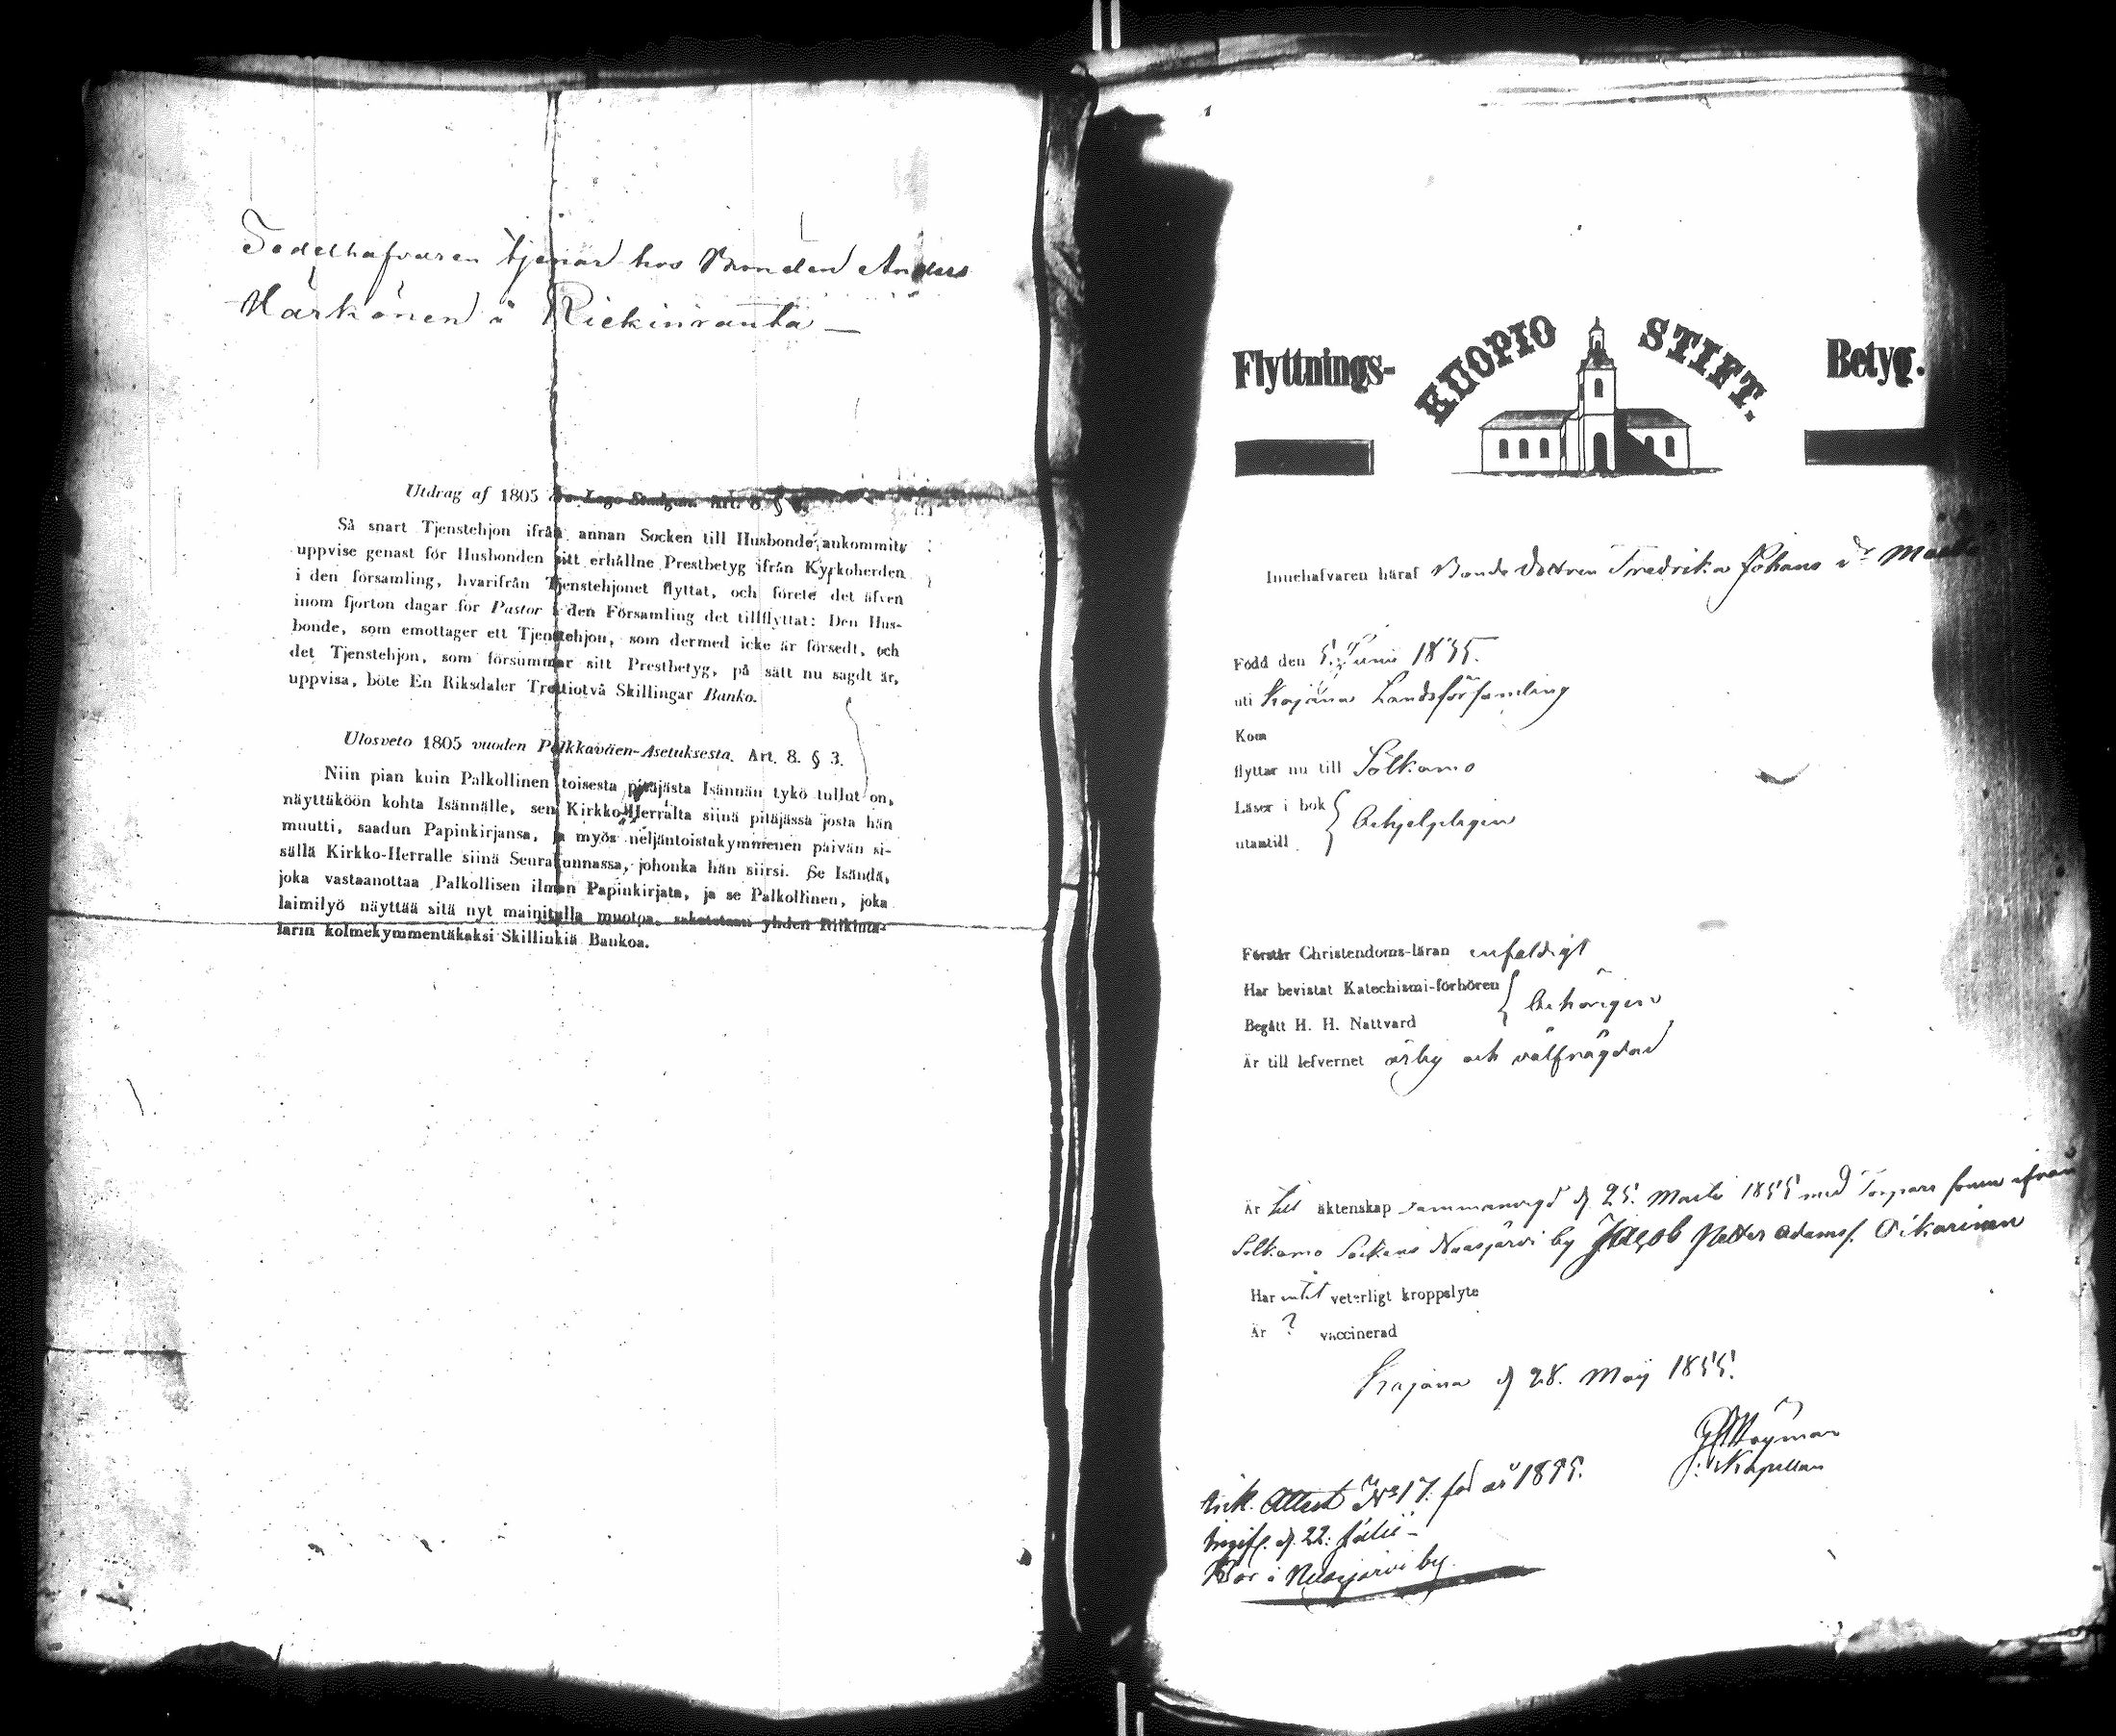 Sedelhafvaren tjenar hos Bonden Anders
Härkönen i Riekinranta —
Utdrag af 1805 Lego Stadgan. Art. 8 §
Så snart Tjenstehjon ifrån annan Socken till Husbonde ankommit,
uppvise genast för Husbonden sitt erhållne Prestbetyg ifrån Kyrkoherden
i den församling, hvarifrån Tjenstehjonet flyttat, och förete det äfven
inom fjorton dagar för Pastor i den Församling det tillflyttat: Den Hus-
bonde, som emottager ett Tjenstehjon, som dermed icke är försedt, och
det Tjenstehjon, som försummar sitt Prestbetyg, på sätt nu sagdt är,
uppvisa, böte En Riksdaler Trettiotvå Skillingar Banko.
Ulosveto 1805 vuoden Palkkaväen-Asetuksesta. Art. 8. § 3.
Niin pian kuin Palkollinen toisesta pitäjästä Isännän tykö tullut on,
näyttäköön kohta Isännälle, sen Kirkko-Herralta siinä pitäjässä josta hän
muutti, saadun Papinkirjansa, ja myös neljäntoistakymmenen päivän si-
sällä Kirkko-Herralle siinä Seurakunnassa, johonka hän siirsi. Se Isändä,
joka vastaanottaa Palkollisen ilman Papinkirjata, ja se Palkollinen, joka
laimilyö näyttää sitä nyt mainitulla muotoa, sakotetaan yhden Riikinta-
larin kolmekymmentäkaksi Skillinkiä Bankoa.
1
Flyttnings- KUOPIO STIFT. Betyg.
Innehafvaren häraf Bonde dottren Fredrika Johans dr
Född den 5. Junii 1835.
uti Kajana Landsförsamling
Kom
flyttar nu till Sotkamo
Läser i bok
utantill
Förstår Christendoms-läran enfaldigt
Har bevistat Katechismi-förhören
Begått H. H. Nattvard behörigen
Är till lefvernet ärlig och välfrägdad
Är till äktenskap sammanvigd d 25. Martii 1855 med Torpare sonen ifrån
Sotkamo Sockens Nuasjärvi by Jacob Petter Adamsf. Oikarinen
Har intet veterligt kroppslyte
Är ? vaccinerad
Kajana d 28. Maij 1855.
Kapellan
Ink. Attest No 17. för år 1855.
d. 22. Julii —
Bor i Nuasjärvi by.